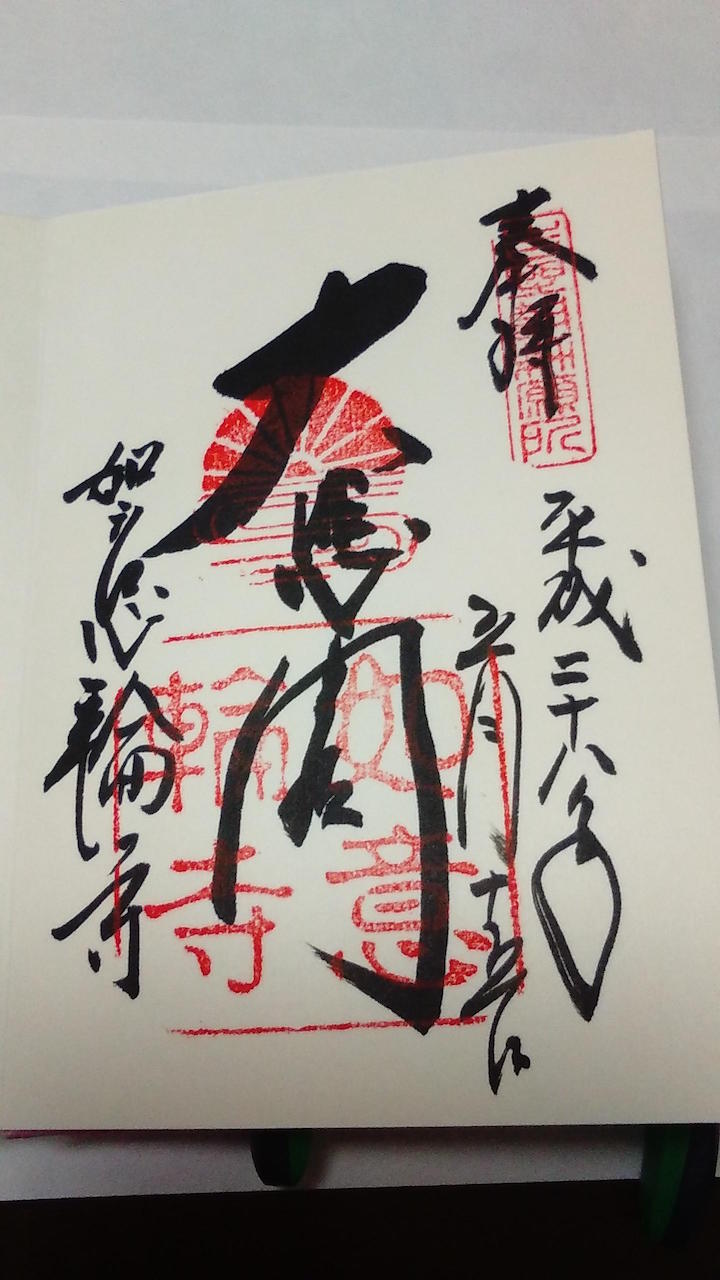 奉拝
平成二十八年
五月十五日
大悲閣
如意輪寺
如意輪寺